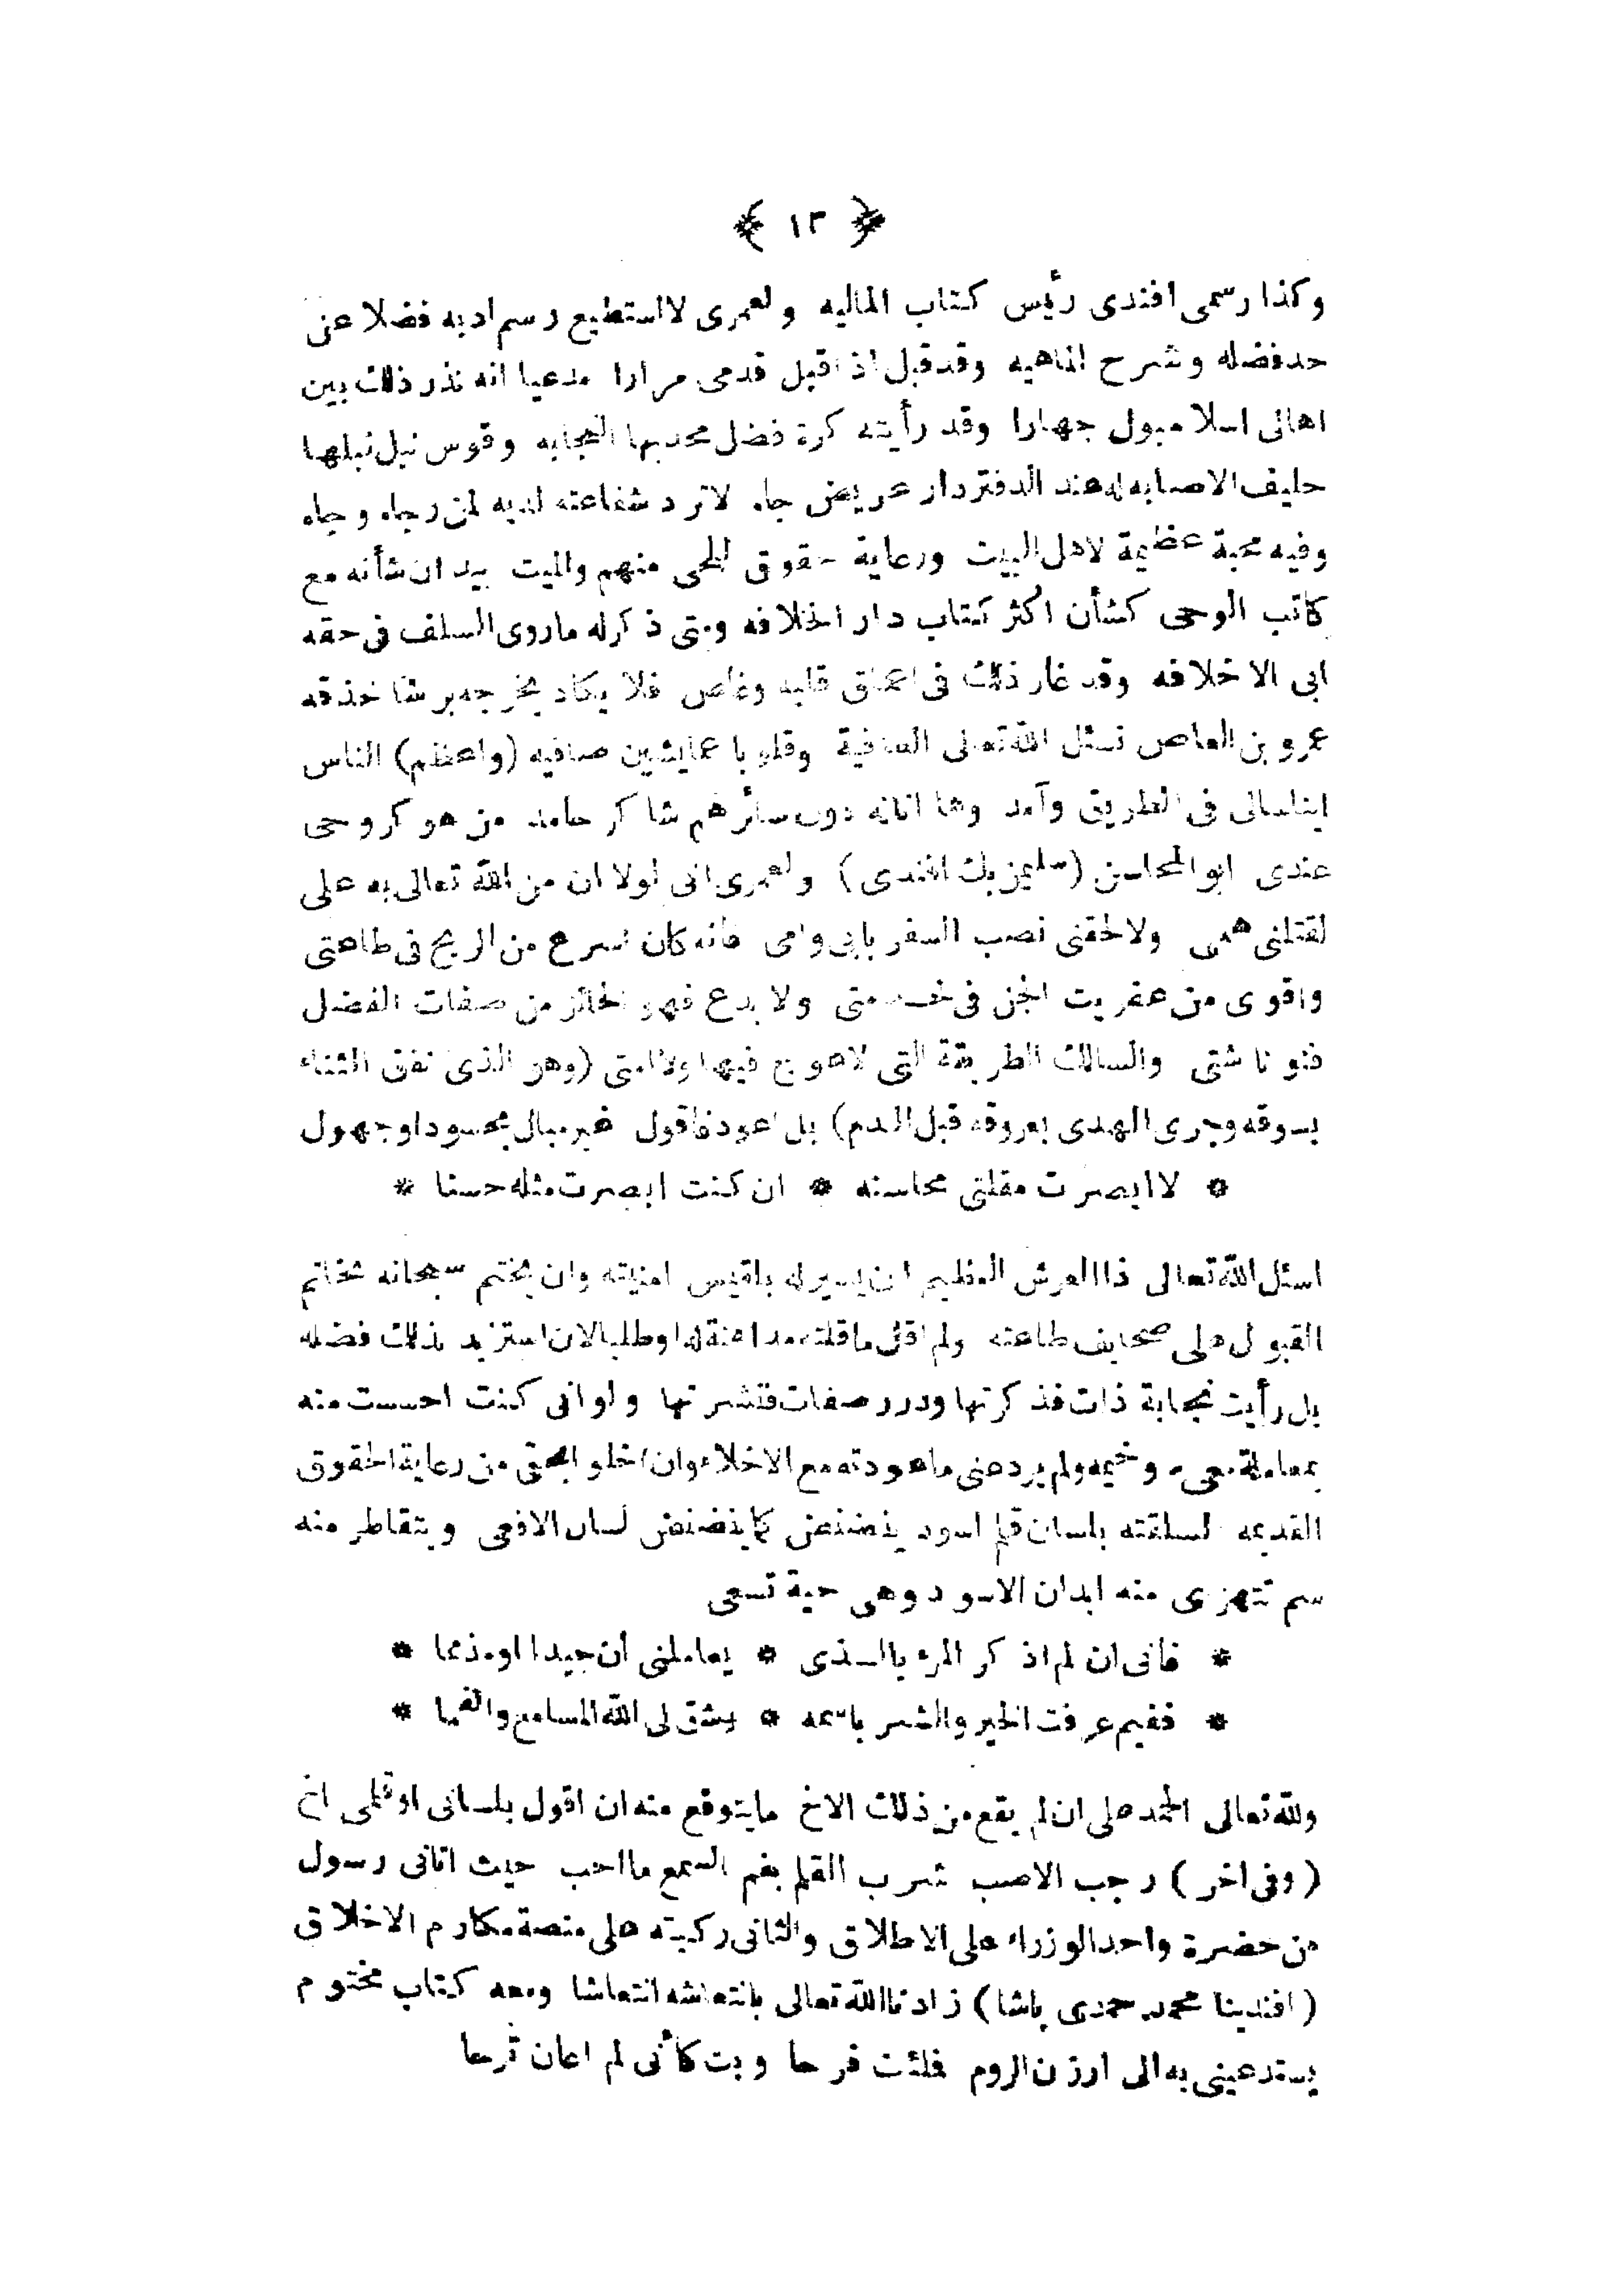 ﴿ ١٣ ﴾
وكذا رسمى افندى رئيس كتاب الماليه ولعمرى لا استطيع رسم ادبه فضلا عن
حد فضله وشرح الماهيه وقد قبل اذ اقبل قدمى مرارا مدعيا انه نذر ذلك بين
اهالى اسلامبول جهارا وقد رأيته كرة فضل محدبها النجابه وقوس نبل نبلها
حليف الاصابه له عند الدفتردار عريض جاه لاترد شفاعته لديه لمن رجاه وجاه
وفيه محبة عظيمة لاهل البيت ورعاية حقوق للحى منهم والميت بيد ان شأنه مع
كاتب الوحى كشأن اكثر كتاب دار الخلافه ومتى ذكر له ماروى السلف فى حقه
ابى الاخلافه وقد غار ذلك فى اعماق قلبه وغاص فلا يكاد يخرجه برشا حذقه
عمرو بن العاص نسئل الله تعالى العافية وقلوبا عما يشين صافيه (واعظم) الناس
ايناسالى فى الطريق وآمد وها انا له دون سائرهم شاكر حامد من هو كروحى
عندى ابو المحاسن (سليمن بك افندى) ولعمرى انى لولا ان من الله تعالى به على
لقتلنى همى ولالحقنى نصب السفر بابى وامى فانه كان اسرع من الريح فى طاعتى
واقوى من عفريت الجن فى خدمتى ولا بدع فهو الحائز من صفات الفضل
فنونا شتى والسالك الطريقة التى لاعوج فيها ولا امتى (وهو الذى نفق الثناء
بسوقه وجرى الهدى بعروقه قبل الدم) بل اعود فاقول غير مبال بحسود او جهول
* لا ابصرت مقلتى محاسنه * ان كنت ابصرت مثله حسنا *
اسئل الله تعالى ذا العرش العظيم ان يسير له بلقيس امنيته وان يختم سبحانه بخاتم
القبول على صحايف طاعته ولم اقل ماقلته مداهنة له او طلبا لان استزيد بذلك فضله
بل رأيت نجابة ذات فذكرتها ودرر صفات فنشرتها ولو انى كنت احسست منه
بمعاملة معى وخيمه ولم يردعنى ماعودته مع الاخلاء وان اخلوا بحق من رعاية الحقوق
القديمه لسلقته بلسان قلم اسود ينضنض كما ينضنض لسان الافعى ويتقاطر منه
سم تتهزى منه ابدان الاسود وهى حية تسعى
* فانى ان لم اذكر المرء بالذى * يعاملنى أن جيدا او مذمما *
* ففيم عرفت الخير والشر باسمه * وشق لى الله المسامع والفما *
ولله تعالى الحمد على ان لم يقع من ذلك الاخ مايتوقع منه ان اقول بلسانى او قلمى اخ
(وفى اخر) رجب الاصب شرب القلم بفم السمع ما احب حيث اتانى رسول
من حضرة واحد الوزراء على الاطلاق والثانى ركبته على منصة مكارم الاخلاق
(افندينا محمد حمدى پاشا) زادنا الله تعالى بانتعاشه انتعاشا ومعه كتاب مختوم
يستدعينى به الى ارزن الروم فملئت فرحا وبت كأنى لم اعان ترحا